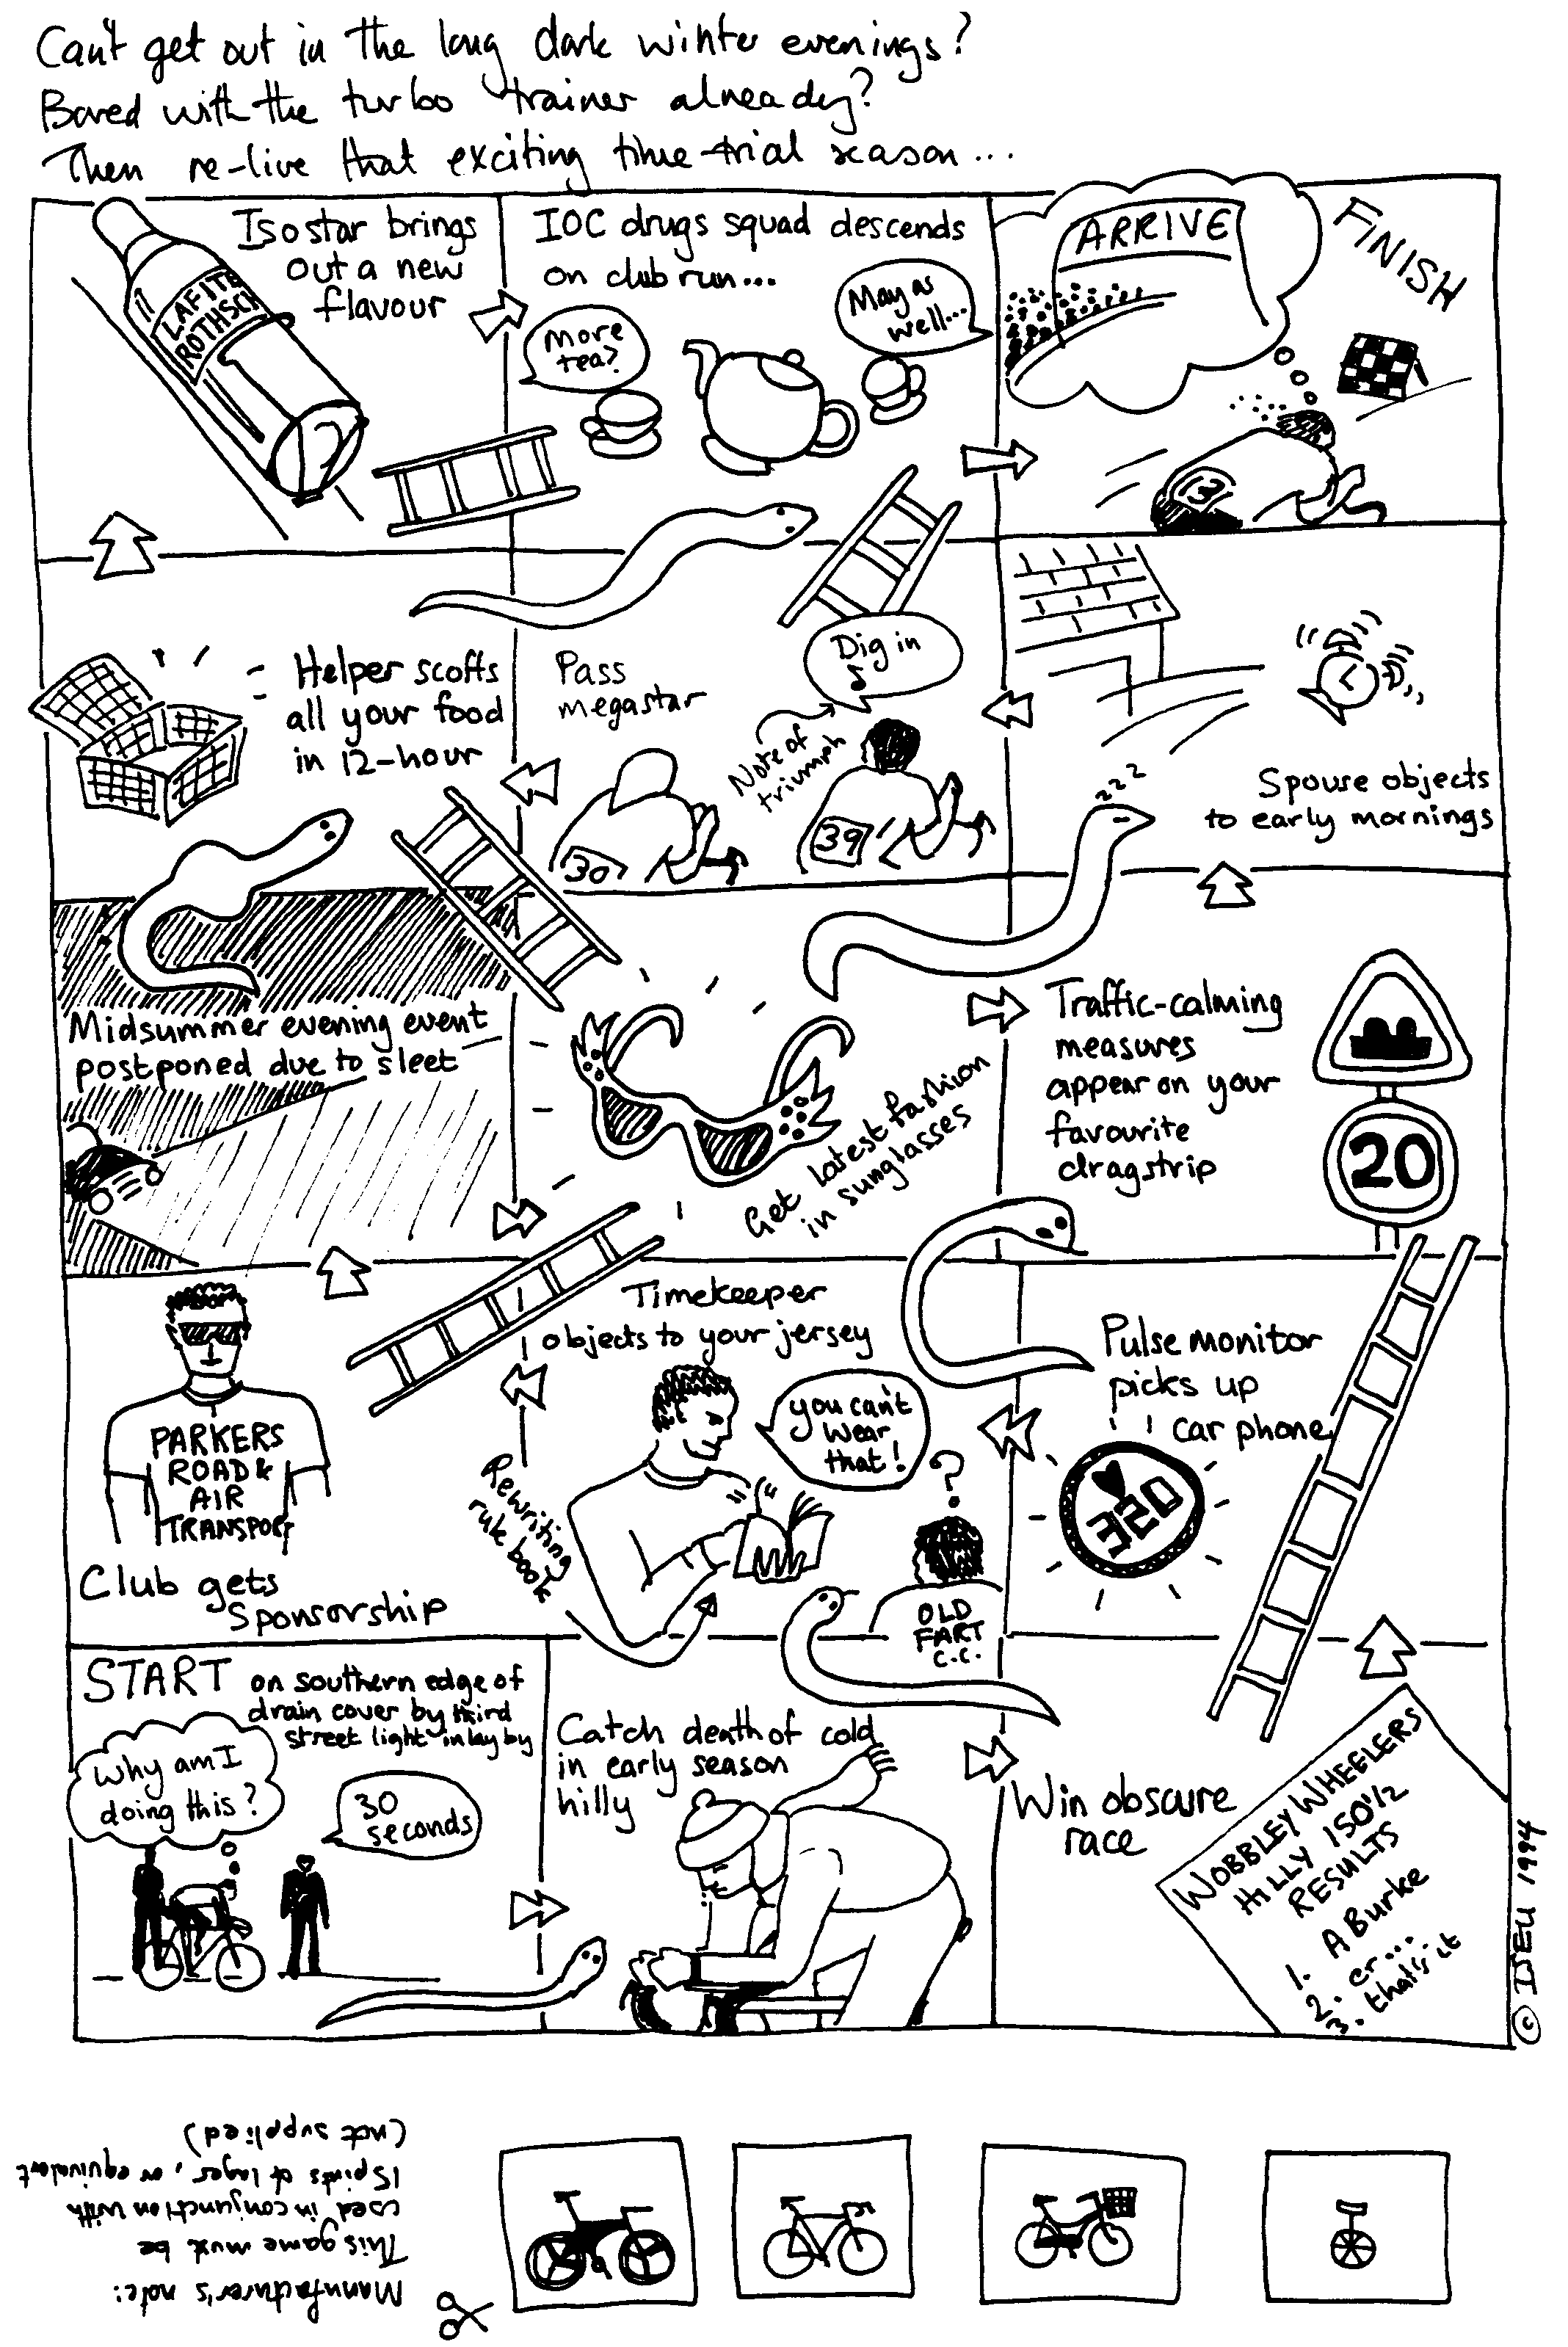 Can't get out in the long dark winter evenings?
Bored with the turbo trainer already?
Then re-live that exciting time-trial season...
Isostar brings
out a new
flavour
LAFITE
ROTHSCH
IOC drugs squad descends
on club run...
More
tea?
May as
well...
ARRIVE
FINISH
3
Helper scoffs
all your food
in 12-hour
Pass
megastar
Dig in
Note of
triumph
30
39
zzz
Spouse objects
to early mornings
Midsummer evening event
postponed due to sleet
Get latest fashion
in sunglasses
Traffic-calming
measures
appear on your
favourite
dragstrip
20
PARKERS
ROAD &
AIR
TRANSPORT
Club gets
Sponsorship
Timekeeper
objects to your jersey
you can't
wear
that!
?
Rewriting
rule book
OLD
FART
C.C.
Pulse monitor
picks up
car phone
320
START on southern edge of
drain cover by third
street light in lay by
Why am I
doing this?
30
seconds
Catch death of cold
in early season
hilly
Win obscure
race
WOBBLEY WHEELERS
HILLY 150½
RESULTS
1. A Burke
2. er...
3. that's it
© IJEU 1994
Manufacturer's note:
This game must be
used in conjunction with
15 pints of lager, or equivalent
(not supplied)